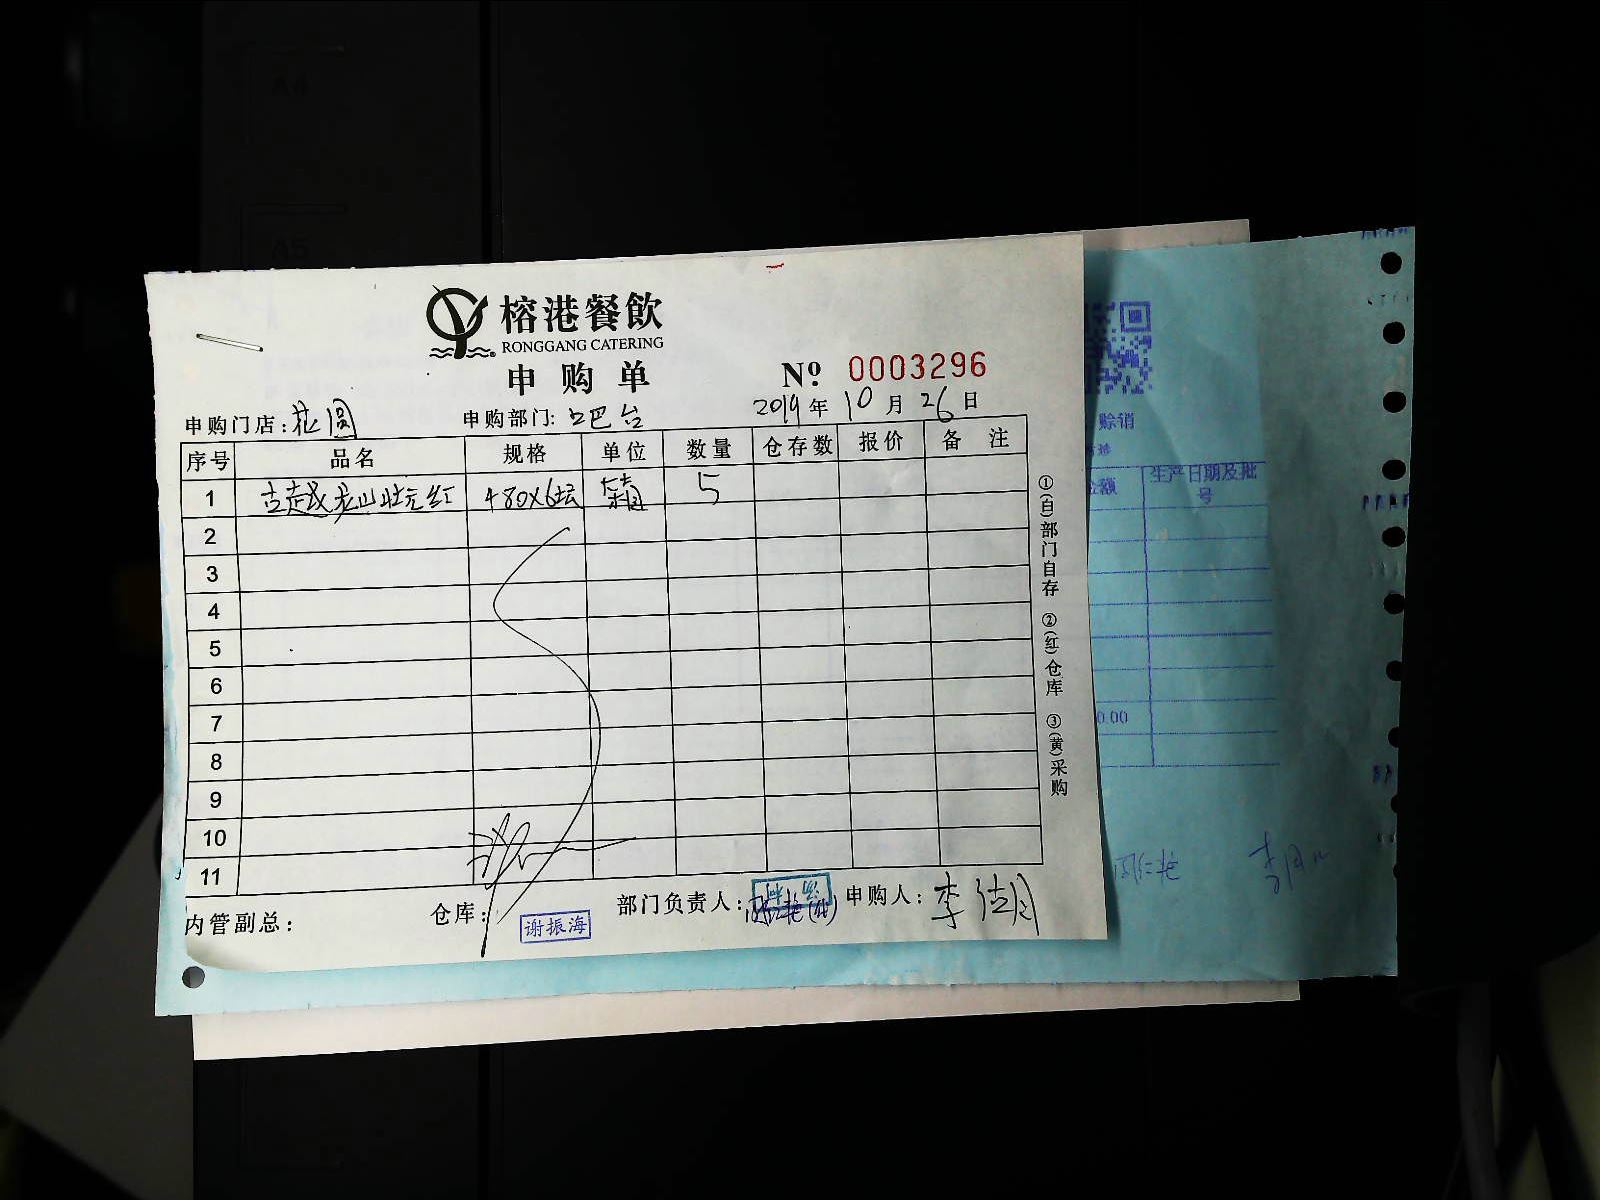 A4
A5
榕港餐飲
RONGGANG CATERING
申购单
Nº: 0003296
申购门店:花圆
申购部门: 吧台
2019年10月26日
序号 品名 规格 单位 数量 仓存数 报价 备注
1 古越龙山状元红 480×6坛 箱 5
2
3
4
5
6
7
8
9
10
11
内管副总:
仓库:
谢振海
部门负责人:
申购人:李
①(白)部门自存 ②(红)仓库 ③(黄)采购
赊销
金额
生产日期及批号
0.00